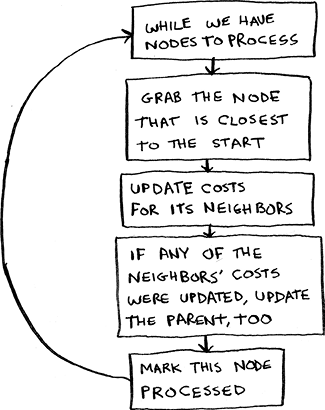 WHILE WE HAVE
NODES TO PROCESS
GRAB THE NODE
THAT IS CLOSEST
TO THE START
UPDATE COSTS
FOR ITS NEIGHBORS
IF ANY OF THE
NEIGHBORS' COSTS
WERE UPDATED, UPDATE
THE PARENT, TOO
MARK THIS NODE
PROCESSED